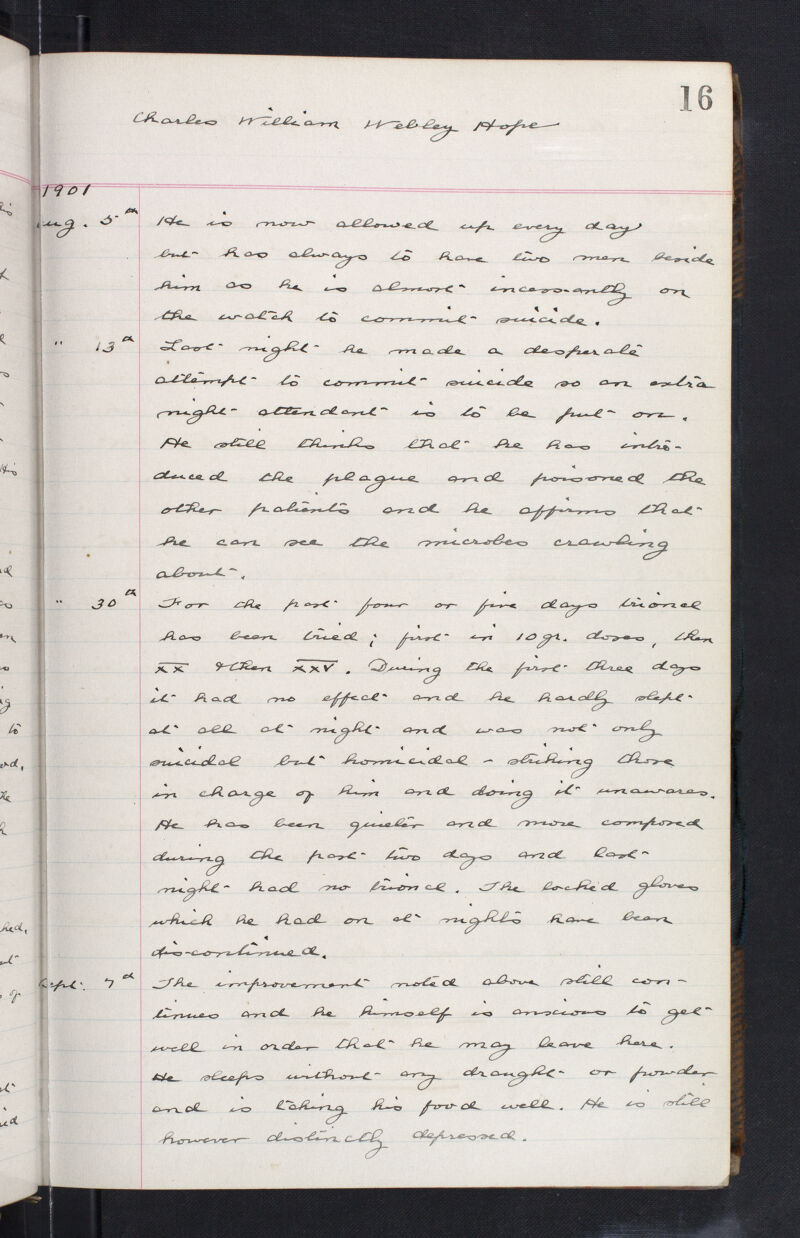 16
Charles William Webley Hope
1901
Aug. 5th He is now allowed up every day
but has always to have two men beside
him as he is almost incessantly on
the watch to commit suicide.
" 13th Last night he made a desperate
attempt to commit suicide so an extra
night attendant is to be put on.
He still thinks that he has intro-
duced the plague and poisoned the
other patients and he affirms that
he can see the microbes crawling
about.
" 30th For the past four or five days trional
has been tried; first in 10 gr. doses, then
xx & then xxv. During the first three days
it had no effect and he hardly slept
at all at night and was not only
suicidal but homicidal - striking those
in charge of him and doing it unawares.
He has been quieter and more composed
during the past two days and last
night had no trional. The locked gloves
which he had on at nights have been
discontinued.
Sept. 7th The improvement noted above still con-
tinues and he himself is anxious to get
well in order that he may leave here.
He sleeps without any draught or powder
and is taking his food well. He is still
however distinctly depressed.